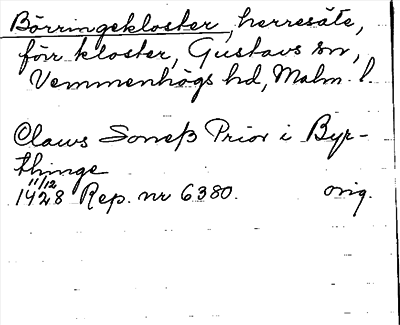 Börringekloster, herresäte,
förr kloster, Gustavs sn,
Vemmenhögs hd, Malm. l.
Claws Soneß Prior i Byr-
thinge
11/12
1428 Rep. nr 6380. orig.